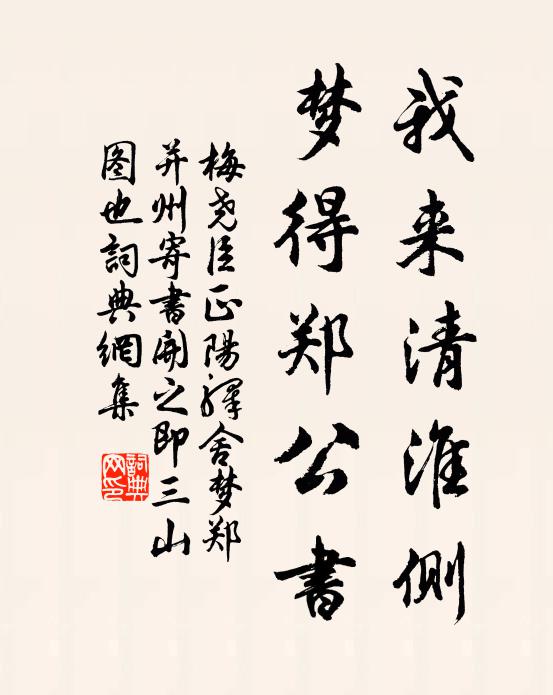 我来清淮侧
梦得郑公书
梅尧臣正陽驛舍梦郑
并州寄書開之即三山
图也詞典網集
詞典网印